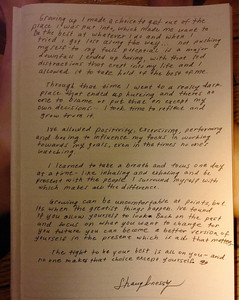 Growing up I made a choice to get out of the
place I was put into, which made me want to
be the best at whatever I do and when I
tried I got lost along the way... not pushing
myself to my full potential is a major
downfall I ended up having, with that led
distractions that crept into my life and
allowed it to take hold of the best of me.
Through that time I went to a really dark
place that ended up hurting and there's no
one to blame or put that on except my
own decisions. I took time to reflect and
grow from it.
positivity, exercising, performing
and being to influence my faith in working
towards my goals, even in the times no one's
watching.
I learned to take a breath and focus one day
at a time - like inhaling and exhaling and be
present with the people I surround myself with
which makes all the difference.
Growing can be uncomfortable at points, but
it's when the greatest things happen. I've found
if you allow yourself to look back on the past
and focus on what you want to change for
you future you can become a better version of
yourself in the present which is all that matters.
The fight to be your best is all on you - and
no one makes that choice except yourself